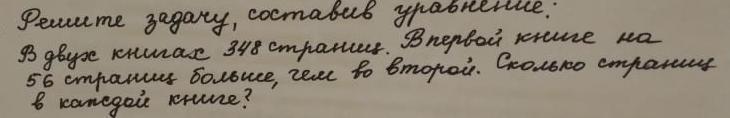 Решите задачу, составив уравнение:
В двух книгах 348 страниц. В первой книге на
56 страниц больше, чем во второй. Сколько страниц
в каждой книге?